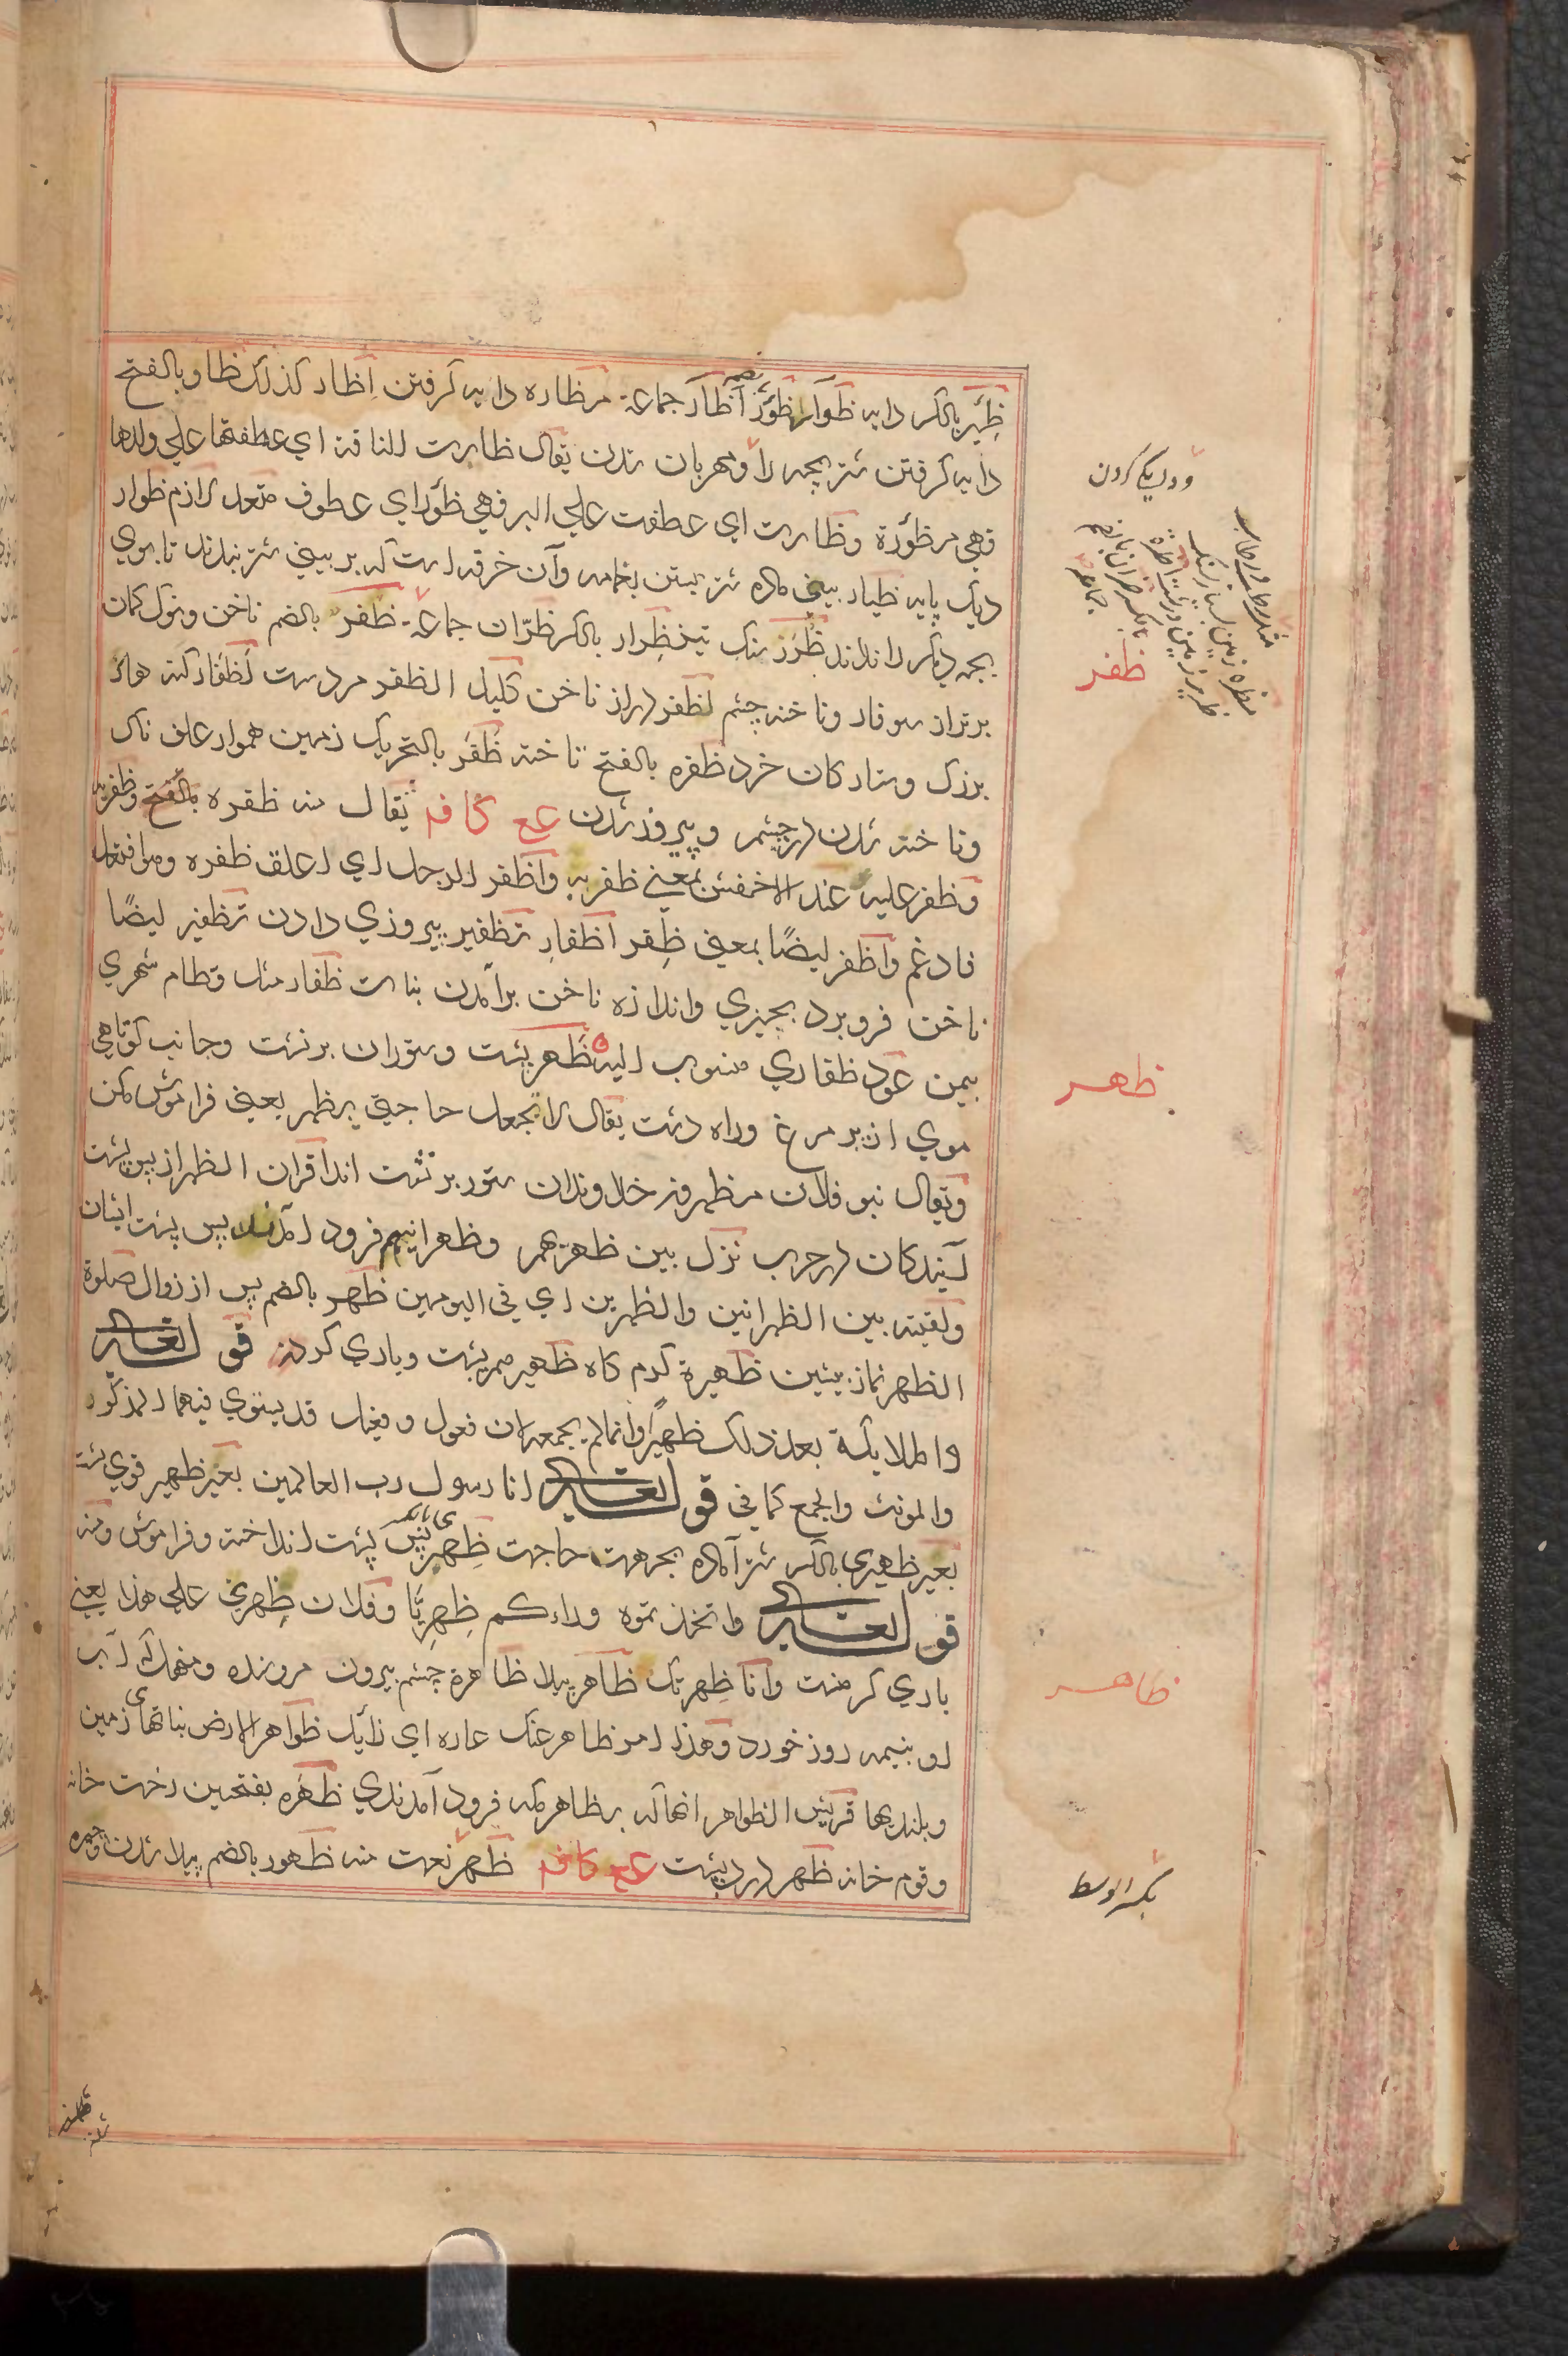 ظِئر بالكسر دايه ظوار ظؤر آظآر جماعة مظاره دايه كرفتن اظار كذلك ظاو بالفتح
دايه كرفتن شتر بچه را ومهربان شدن يقال ظارت الناقة اي عطفتها علي ولدها
فهي مظؤرة وظارت اي عطفت علي البر فهي ظؤر اي عطوف متعد لازم ظوار
ديك پايه ظيار بيني ماده شتر بستن بغمامه وآن خرقه است كه بر بيني شتر بندند تا بوي
بچه ديكر را نداند ظُرَر سنك تيز ظِرار بالكسر ظرّان جماعة ظفر بالضم ناخن ونوك كمان
برتر از سوفار وناخنه چشم اظفر دراز ناخن كليل الظفر مردست اظفار كنه هاء
بزرك وستاركان خرد ظفره بالفتح ناخنه ظَفَر بالتحريك زمين هموار علف ناك
وناخنه شدن در چشم و پيروز شدن عع كافه يقال منه ظفره بالفتح وظفر به
وظفر عليه عند الاخفش بمعني ظفر به واظفر الرجل اي اعلق ظفره وهو افتعل
فادغم واظفر ايضًا بمعني ظفر اظفار تظفير پيروزي دادن تظفير ايضًا
ناخن فرو برد بچيزي واندازه ناخن برآمدن بنات ظفار مثل قطام شهري
بيمن عود ظفاري منسوب اليه ظَهر پشت وستوران برنشت وجانب كوتاهي
موي از پر مرغ وراه دشت يقال لا تجعل حاجتي بظهر يعني فراموش مكن
ويقال نبو فلان مظهرون خداوندان ستور برنشت اند اقران الظهر از پس پشت
آيندكان در حرب نزل بين ظهريهم وظهرانيهم فرود آمدند پس پشت ايشان
ولقيته بين الظهرانين والظهرين اي في اليومين ظُهر بالضم پس از زوال صلوة
الظهر نماز پيشين ظهيرة كرم كاه ظهير هم پشت وياري كردن قوله تعالى
والملايكة بعد ذلك ظهيرًا وانما لم يجمعه لان فعول وفعيل قد يستوي فيهما المذكر
والمونث والجمع كما في قوله تعالى انا رسول رب العالمين بعير ظهير قوي پشت
بعير ظهري بالكسر شتر آماده بجهت حاجت ظِهري پس پشت انداخته وفراموش ومنه
قوله تعالى واتخذتموه وراءكم ظِهرِيًّا وفلان ظِهرتي علي هذا يعني
ياري كر منت وانا ظِهرتك ظاهر پيدا ظاهرة چشم بيرون
او بنيمه روز خورد وهذا امر ظاهر عنك عاره اي زايل ظواهر الارض زمين
وبلنديها قريش الظواهر انها كه بظاهر مكه فرود آمدندي ظَهَره بفتحين رخت خانه
وقوم خانه ظهر درد پشت عع كافه ظَهِر نعت منه ظهور بالضم پيدا شدن
ظفر
ظهر
ظاهر
بكسر الوسط